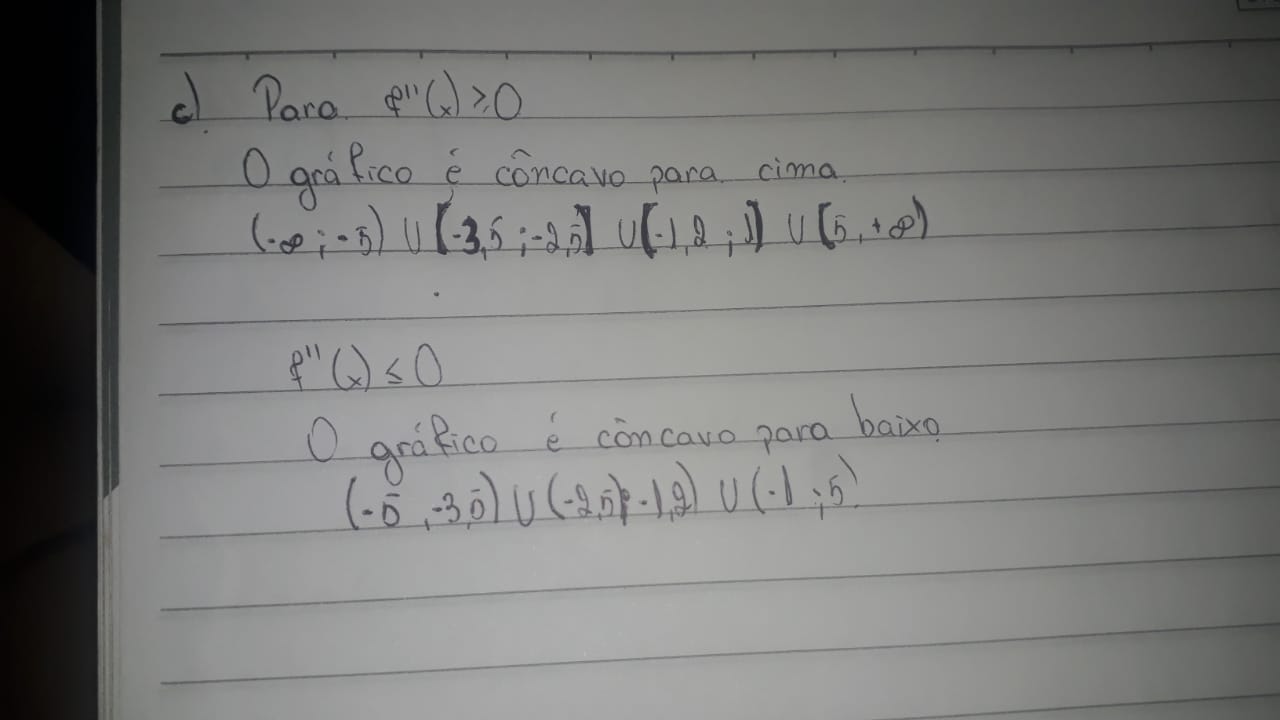 c) Para f''(x) ≥ 0
O gráfico é côncavo para cima.
(-∞ ; -5) ∪ [-3,5 ; -2,5] ∪ [-1,2 ; 1] ∪ [5, +∞)
f''(x) ≤ 0
O gráfico é côncavo para baixo
(-5 , -3,5) ∪ (-2,5; -1,2) ∪ (-1 ; 5)